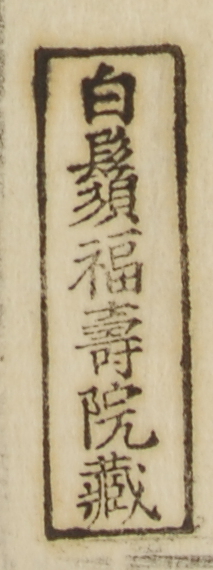 白鬚福壽院藏